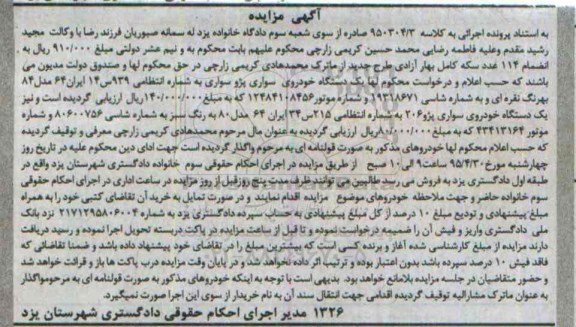 آگهی مزایده
به استناد پرونده اجرائی به کلاسه ۹۵۰۳۰۴/۳ صادره از سوی شعبه سوم دادگاه خانواده یزد له سمانه صبوریان فرزند رضا با وکالت مجید
رشید مقدم وعلیه فاطمه رضایی محمد حسین کریمی زارچی محکوم علیهم بابت محکوم به و نیم عشر دولتی مبلغ ۹۱۰/۰۰۰ ریال به
انضمام ۱۱۴ عدد سکه کامل بهار آزادی طرح جدید از ماترک محمدهادی کریمی زارچی در حق محکوم لها و صندوق دولت مدیون می
باشند که حسب اعلام و درخواست محکوم لها یک دستگاه خودروی سواری پژو سواری به شماره انتظامی ۹۳۹س۱۴ ایران۶۴ مدل۸۴
بهرنگ نقره ای و به شماره شاسی ... و شماره موتور۱۲۴۸۴۱۰۸۴۵۶ که به مبلغ۱۴۰/۰۰۰/۰۰۰ریال ارزیابی گردیده است و نیز
یک دستگاه خودروی سواری پژو۲۰۶ به شماره انتظامی ۲۱۵س۳۴ ایران ۶۴ مدل۸۰ به رنگ سبز به شماره شاسی ۸۰۶۰۰۷۵۶ و شماره
موتور ۴۳۴۱۳۱۶۴ که به مبلغ۸۰/۰۰۰/۰۰۰ریال ارزیابی گردیده به عنوان مال مرحوم محمدهادی کریمی زارچی معرفی و توقیف گردیده
که حسب اعلام محکوم لها خودروهای مذکور به صورت قولنامه ای به مرحوم واگذار گردیده است جهت ادای دین محکوم علیه در تاریخ روز
چهارشنبه مورخ۹۵/۴/۳۰ ساعت۹ الی۱۰ صبح از طریق مزایده در اجرای احکام حقوقی سوم خانواده دادگستری شهرستان یزد واقع در
طبقه اول دادگستری یزد به فروش می رسد طالبین می توانند ظرف مدت پنج روزقبل از روز مزایده در ساعت اداری در اجرای احکام حقوقی
سوم خانواده حاضر و جهت ملاحظه خودروهای موضوع مزایده اقدام نمایند و در صورت تمایل به خرید آن تقاضای کتبی خود را به همراه
مبلغ پیشنهادی و تودیع مبلغ ۱۰ درصد از کل مبلغ پیشنهادی به حساب سپرده دادگستری یزد به شماره ۲۱۷۱۲۹۵۸۰۶۰۰۴ نزد بانک
ملی دادگستری واریز و فیش آن را ضمیمه درخواست نموده و تا قبل از ساعت مزایده در پاکت دربسته تحویل اجرا نموده و رسید دریافت
دارند مزایده از مبلغ کارشناسی شده آغاز و برنده کسی است که بیشترین مبلغ را در تقاضای خود پیشنهاد داده باشد و ضمنا تقاضائی که
فاقد فیش ۱۰ درصد سپرده باشد بدون اعتبار بوده و ترتیب اثر داده نخواهد شد و در پایان وقت مزایده درب پاکت ها باز و قرائت خواهد شد
و حضور متقاضیان در جلسه مزایده بلامانع خواهد بود. بدیهی است با توجه به اینکه خودروهای مذکور به صورت قولنامه ای به مرحومواگذار
به عنوان ماترک مشارالیه توقیف گردیده اقدامی جهت انتقال سند آن به نام خریدار از سوی این اجرا صورت نمیگیرد.
۱۳۲۶ مدیر اجرای احکام حقوقی دادگستری شهرستان یزد